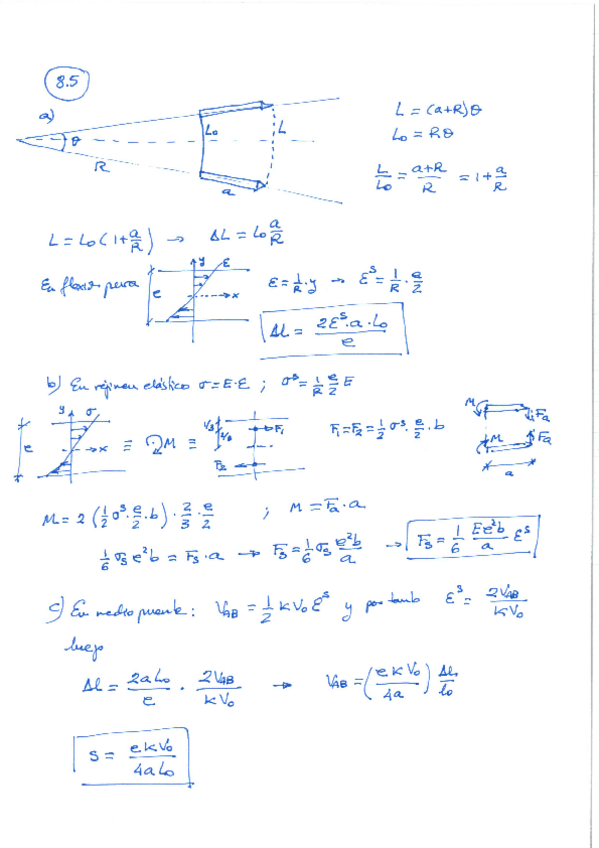 8.5
a)
θ
R
L₀
L
a
L = (a+R)θ
L₀ = Rθ
L/L₀ = (a+R)/R = 1 + a/R
L = L₀(1 + a/R) → ΔL = L₀ a/R
En flexión pura
e
y
ε
x
ε = 1/R · y → εˢ = 1/R · e/2
ΔL = 2εˢ·a·L₀/e
b) En régimen elástico σ = E·ε ; σˢ = 1/R e/2 E
e
y
σ
x
≡ M ≡
F₁
F₂
F₁ = F₂ = 1/2 σˢ · e/2 · b
M
Fa
M
Fa
a
M = 2 (1/2 σˢ · e/2 · b) · 2/3 · e/2 ; M = Fa · a
1/6 σs e² b = Fs · a → Fs = 1/6 σs e²b/a → Fs = 1/6 Ee²b/a εˢ
c) En medio puente: VAB = 1/2 k V₀ εˢ y por tanto εˢ = 2VAB/kV₀
luego
ΔL = 2aL₀/e · 2VAB/kV₀ → VAB = (ekV₀/4a) ΔL/L₀
S = ekV₀/4aL₀